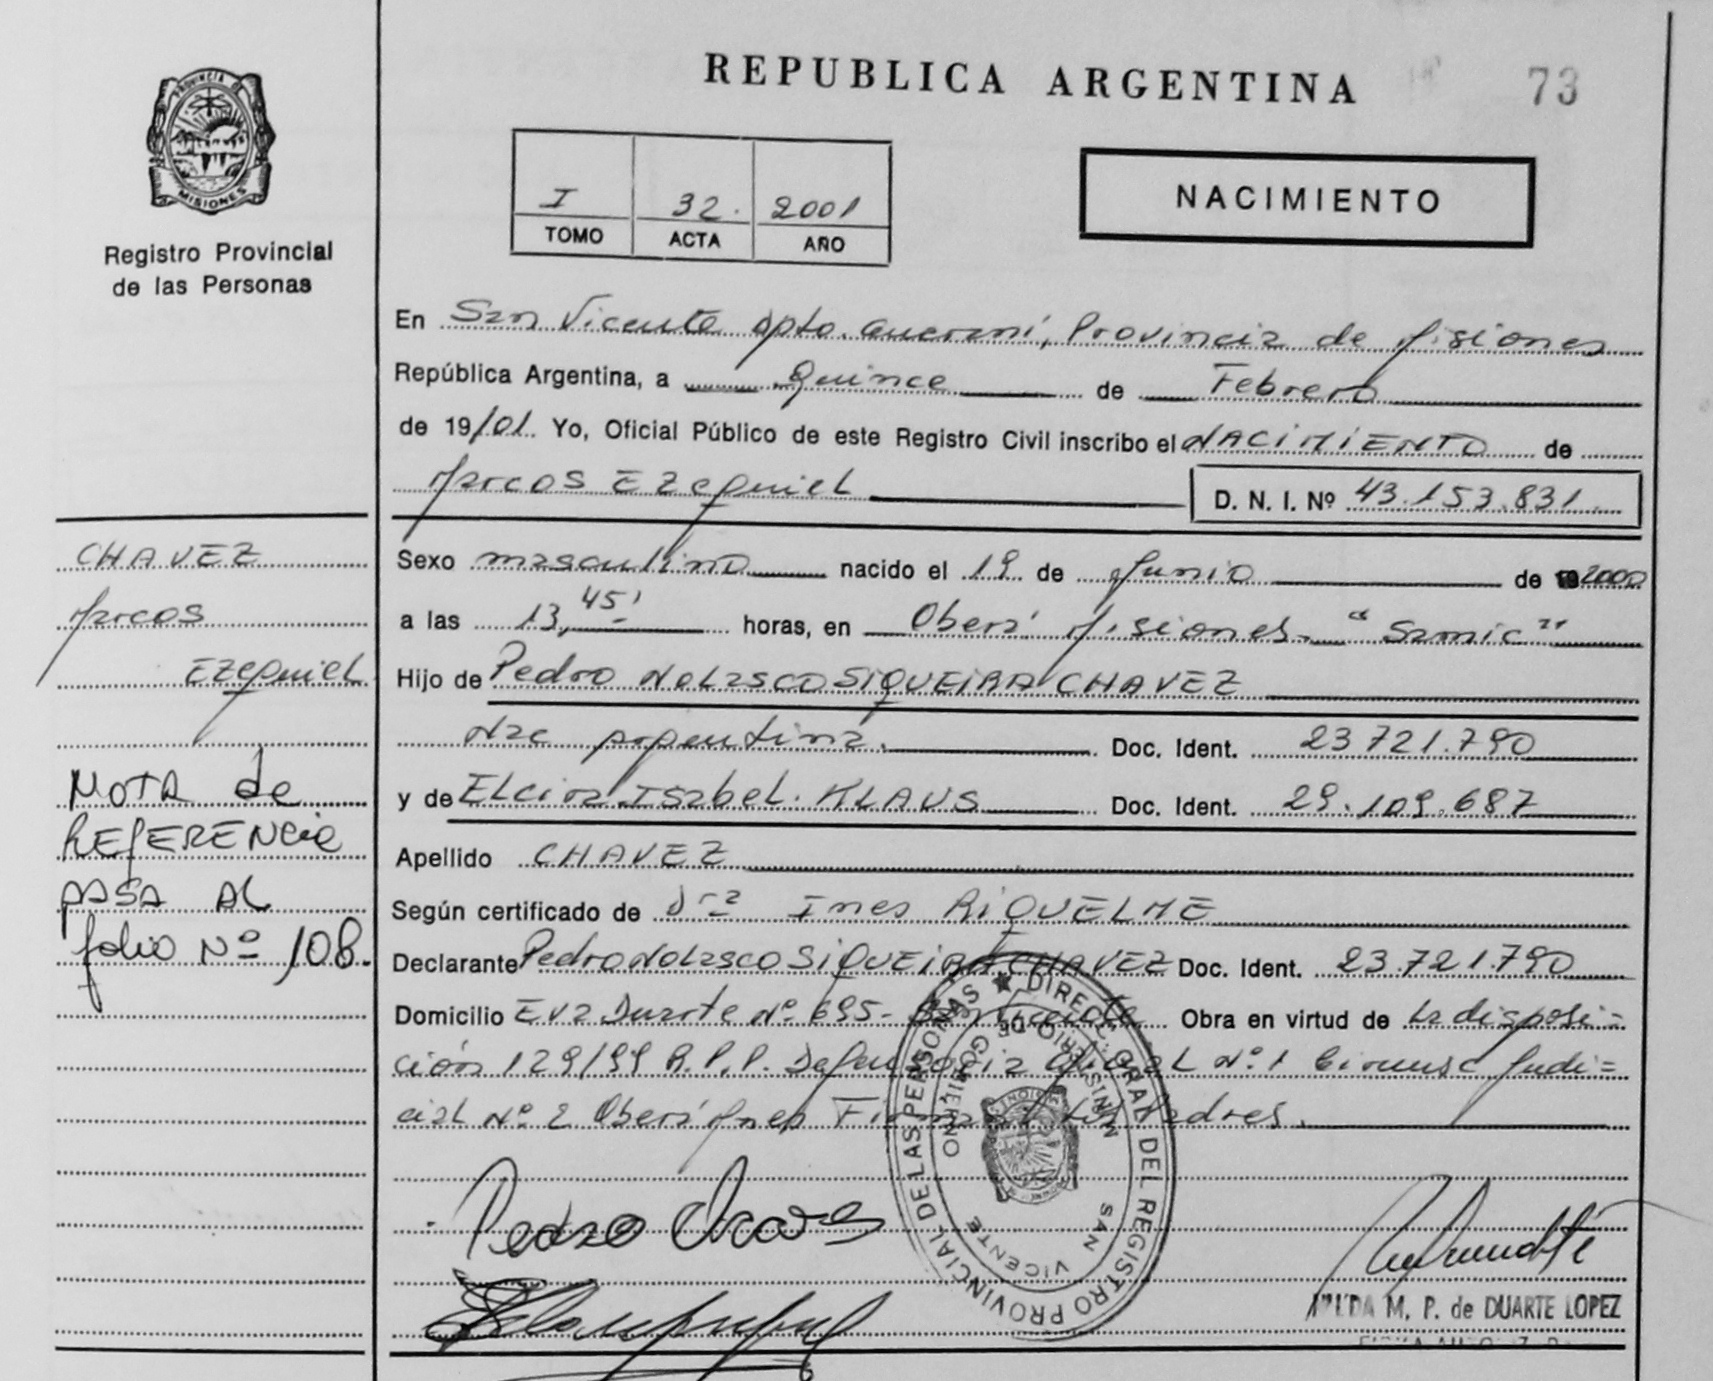 REPUBLICA ARGENTINA 73
PROVINCIA DE
MISIONES
Registro Provincial
de las Personas
I 32. 2001
TOMO ACTA AÑO
NACIMIENTO
En San Vicente Dpto. Guaraní, Provincia de Misiones
República Argentina, a Quince de Febrero
de 19/01. Yo, Oficial Público de este Registro Civil inscribo el NACIMIENTO de
Marcos EZEquiEL D. N. I. Nº 43.153.831
CHAVEZ
Marcos
EZEquiEL
NOTA de
REFERENCia
PASA AL
folio Nº 108.
Sexo masculino nacido el 19 de Junio de 2000
a las 13,45' horas, en Oberá Misiones - "Samic"
Hijo de Pedro NOLASCO SIQUEIRA CHAVEZ
Nac Argentina. Doc. Ident. 23 721.790
y de Elcira Isabel. KLAUS Doc. Ident. 29.109.687
Apellido CHAVEZ
Según certificado de Dra Ines RiQUELME
Declarante Pedro NOLASCO SIQUEIRA CHAVEZ Doc. Ident. 23.721.790
Domicilio Eva Duarte Nº 695 - San Vicente Obra en virtud de La disposi=
ción 129/99 R.P.P. Defensoria Oficial Nº 1 Circunsc Judi=
cial Nº 2 Oberá Mnes Firman Los Padres.
DIREC. GRAL. DEL REGISTRO PROVINCIAL DE LAS PERSONAS
MINISTERIO DE GOBIERNO
SAN VICENTE
Pedro Chaves
M. P. de DUARTE LOPEZ